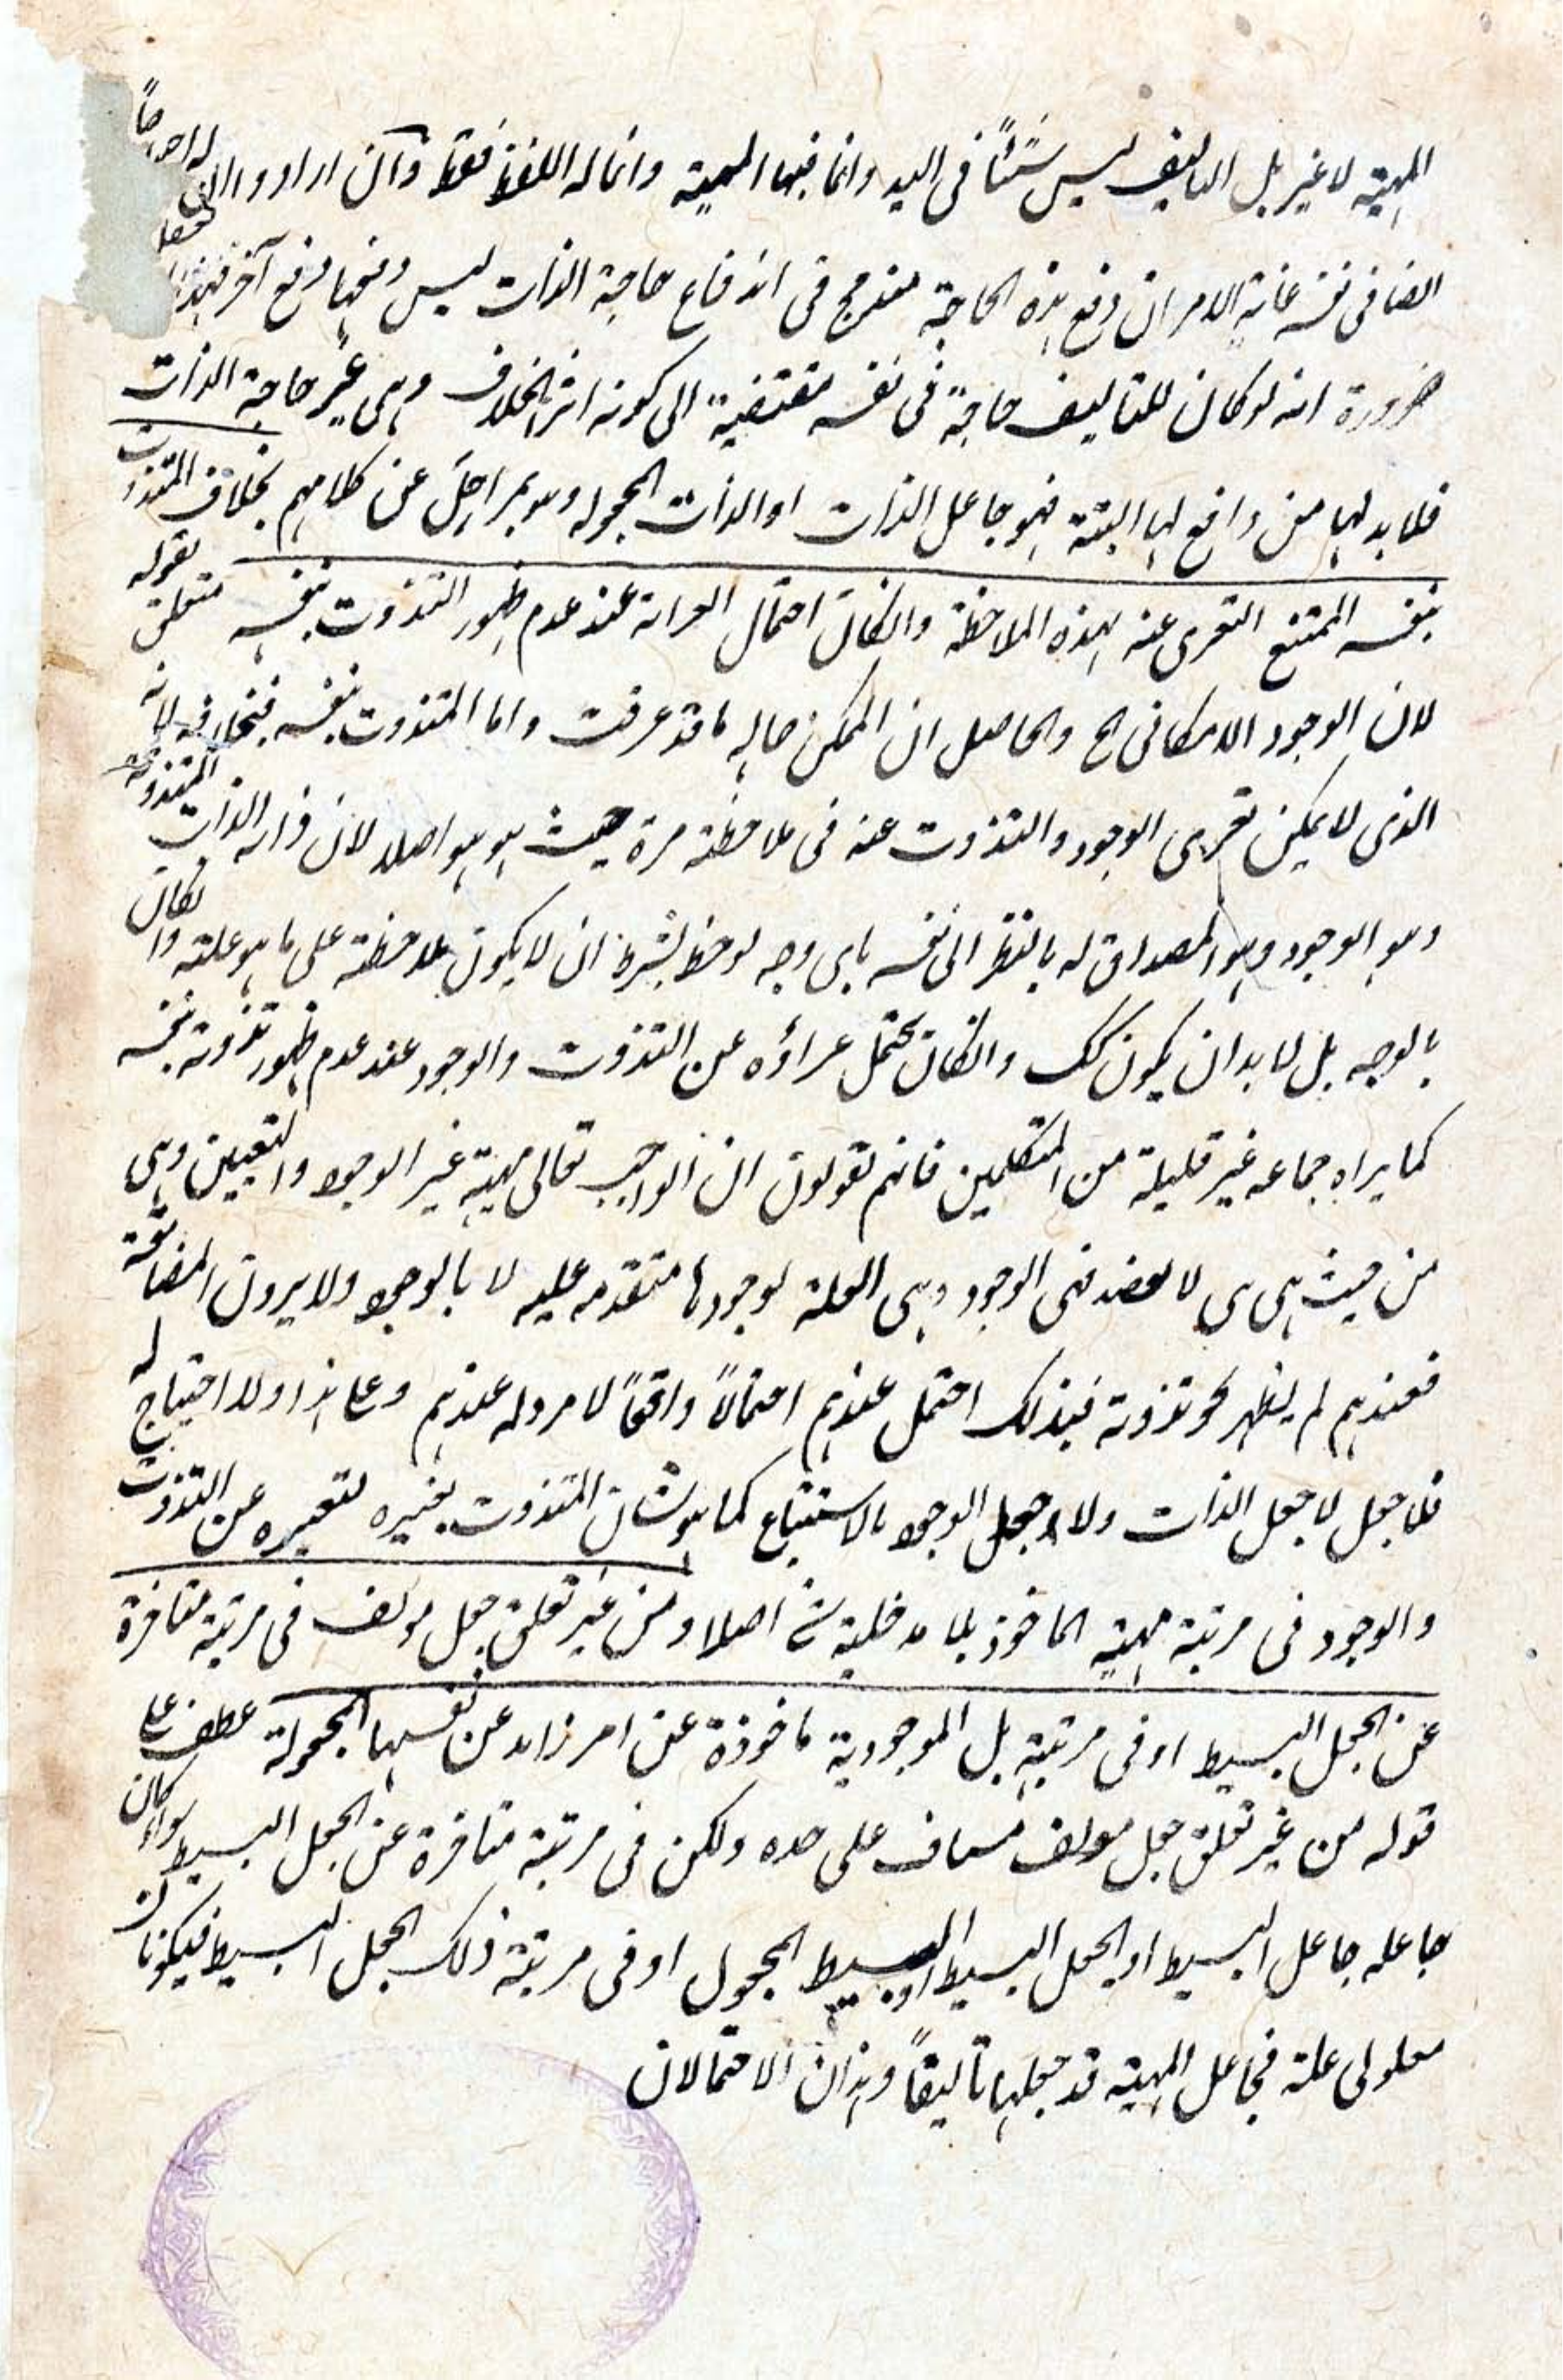 المهية لا غير بل التاليف ليس شئاً فى اليد وانما فيها المهية وانما له اللفظ فقط وآن اراد و ان له احتياجاً
ايضا فى نفسه غاية الامر ان رفع هذه الحاجة مندمج فى اندفاع حاجة الذات ليس رفعها رفع آخر فهذا
ضرورة انه لو كان للتاليف حاجة فى نفسه مقتضية الى كونه اثر الخلاف وهى غير حاجة الذات
فلا بد لها من رافع لها البتة فهو جاعل الذات او الذات المجعوله وهو بمراحل عن كلامهم بخلاف المتذوت
بنفسه الممتنع التعرى عنه بهذه الملاحظة وانكان احتمال العراية عند عدم ظهور التذوت بنفسه متعلق بقوله
لان الوجود الامكانى الخ والحاصل ان الممكن حاله ما قد عرفت واما المتذوت بنفسه فبخلافه لانه
الذى لا يمكن تعرى الوجود والتذوت عنه فى ملاحظة مرة حيث هو هو اصلا لان ذاته الذات المتذوتة
وهو الوجود وهو المصداق له بالنظر الى نفسه باى وجه لوحظ بشرط ان لا يكون ملاحظة على ما هو عليه وانكان
بالوجه بل لا بد ان يكون كك وانكان يحتمل عراؤه عن التذوت والوجود عند عدم ظهور تذوته بنفسه
كما يراه جماعه غير قليلة من المتكلمين فانهم يقولون ان الواجب تعالى مهية غير الوجود والتعيين وهى
من حيث هى هى لا الوجود وهى العلة لوجودها متقدمه عليه لا بالوجود ولا يرون المضايقة
فعندهم لم يظهر نحو تذوته فبذلك احتمل عندهم احتمالاً واقعاً لا مرد له عندهم وعلى هذا و لا احتياج له
فلا جعل لا جعل الذات ولا جعل الوجود بالاستتباع كما هو شان المتذوت بغيره لتعيره عن التذوت
والوجود فى مرتبة مهية الماخوذ بلا مدخلية شئ اصلا ومن غير تعلق جعل مولف فى مرتبة متاخرة
عن الجعل البسيط او فى مرتبته بل الموجودية ماخوذة عن امر زايد عن نفسها المجعولة عطف على
قوله من غير تعلق جعل مولف مستانف على حده ولكن فى مرتبة متاخرة عن الجعل البسيط سواء كان
جاعله جاعل البسيط او الجعل البسيط او البسيط المجعول او فى مرتبة ذلك الجعل البسيط فيكونان
معلولى علة فجاعل المهية قد جعلها تاليفاً وهذان الاحتمالان